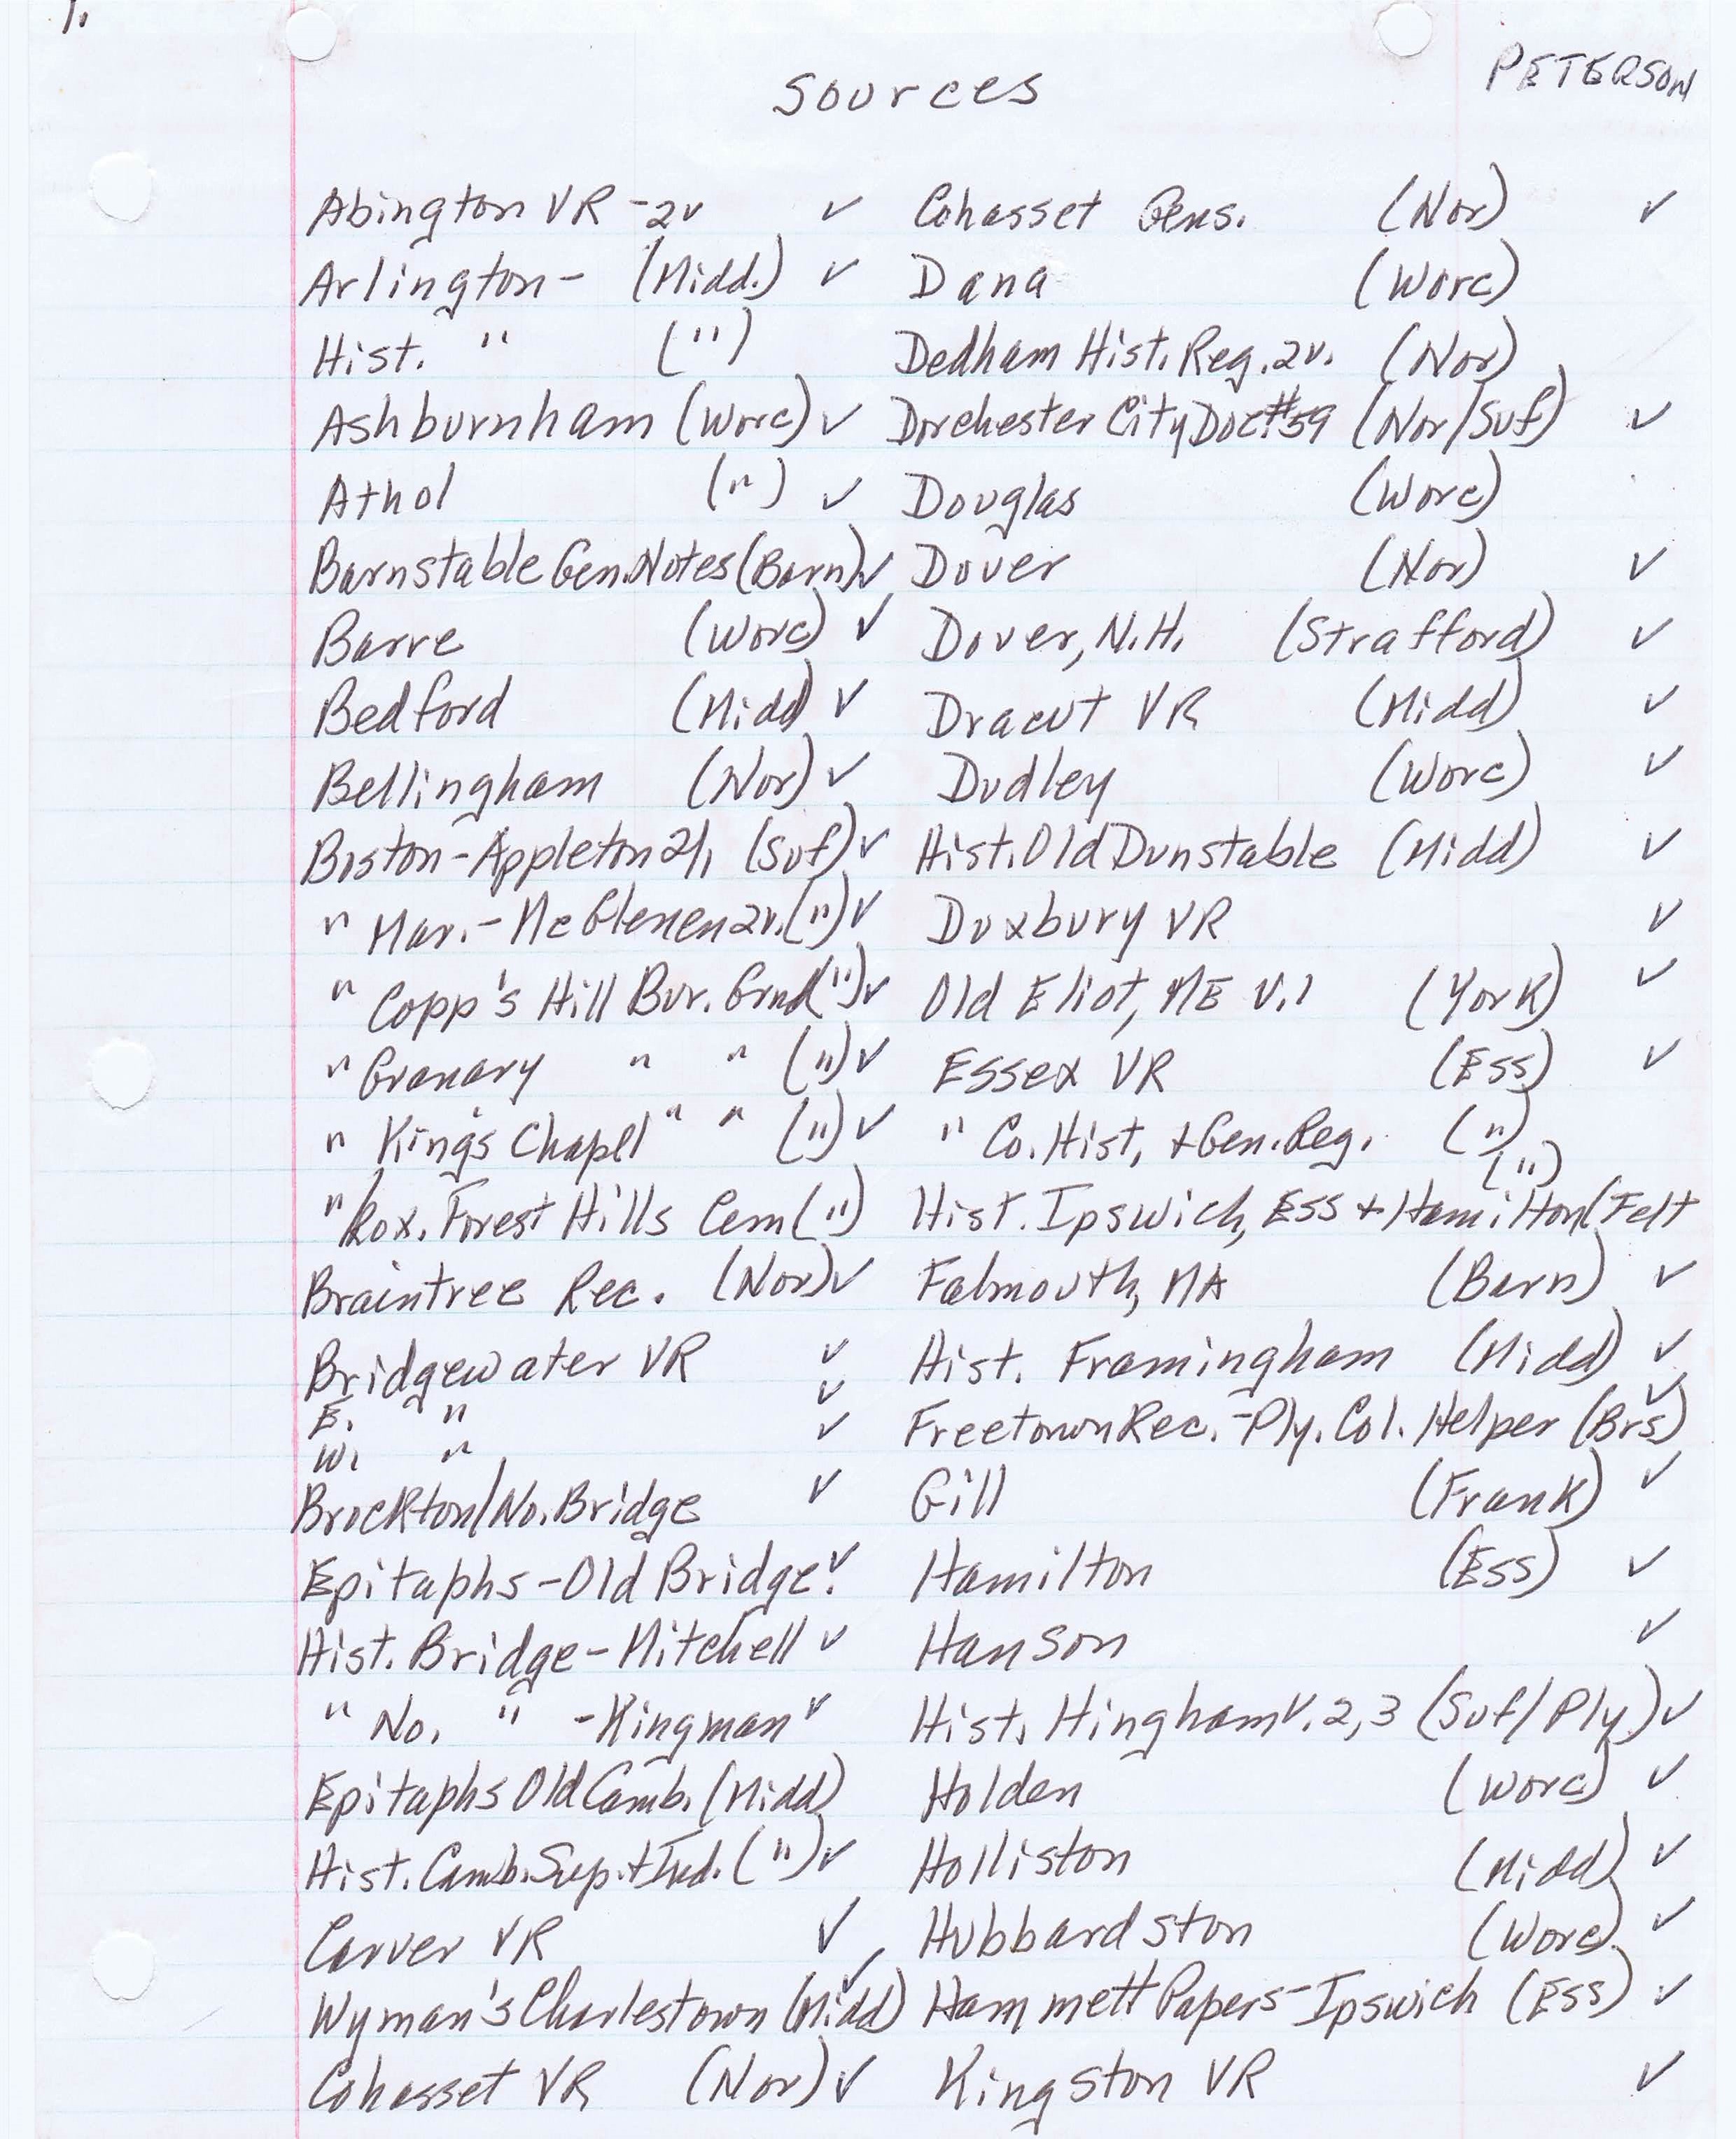 1.
PETERSON
Sources
Abington VR -2v ✓
Arlington- (Midd.) ✓
Hist. " (")
Ashburnham (Worc) ✓
Athol (") ✓
Barnstable Gen. Notes (Barn) ✓
Barre (Worc) ✓
Bedford (Midd) ✓
Bellingham (Nor) ✓
Boston-Appleton (Suf) ✓
" Mar.- McGlenen 2v. (") ✓
" Copp's Hill Bur. Grnd (") ✓
" Granary " " (") ✓
" King's Chapel " " (") ✓
" Rox. Forest Hills Cem (")
Braintree Rec. (Nor) ✓
Bridgewater VR ✓
E. " ✓
W. " ✓
Brockton/No. Bridge ✓
Epitaphs-Old Bridge. ✓
Hist. Bridge-Mitchell ✓
" No. " -Kingman ✓
Epitaphs Old Camb. (Midd)
Hist. Camb. Sup. + Ind. (") ✓
Carver VR ✓
Wyman's Charlestown (Midd) ✓
Cohasset VR (Nor) ✓
Cohasset Gens. (Nor) ✓
Dana (Worc)
Dedham Hist. Reg. 2v. (Nor)
Dorchester City Doc. #59 (Nor/Suf) ✓
Douglas (Worc)
Dover (Nor) ✓
Dover, N.H. (Strafford) ✓
Dracut VR (Midd) ✓
Dudley (Worc) ✓
Hist. Old Dunstable (Midd) ✓
Duxbury VR ✓
Old Eliot, ME V.1 (York) ✓
Essex VR (Ess) ✓
" Co. Hist. + Gen. Reg. (")
(")
Hist. Ipswich, Ess + Hamilton (Felt
Falmouth, MA (Barn) ✓
Hist. Framingham (Midd) ✓
Freetown Rec. -Ply. Col. Helper (Brs) ✓
Gill (Frank) ✓
Hamilton (Ess) ✓
Hanson ✓
Hist. Hingham V. 2,3 (Suf/Ply) ✓
Holden (Worc) ✓
Holliston (Midd) ✓
Hubbardston (Worc) ✓
Hammett Papers-Ipswich (Ess) ✓
Kingston VR ✓